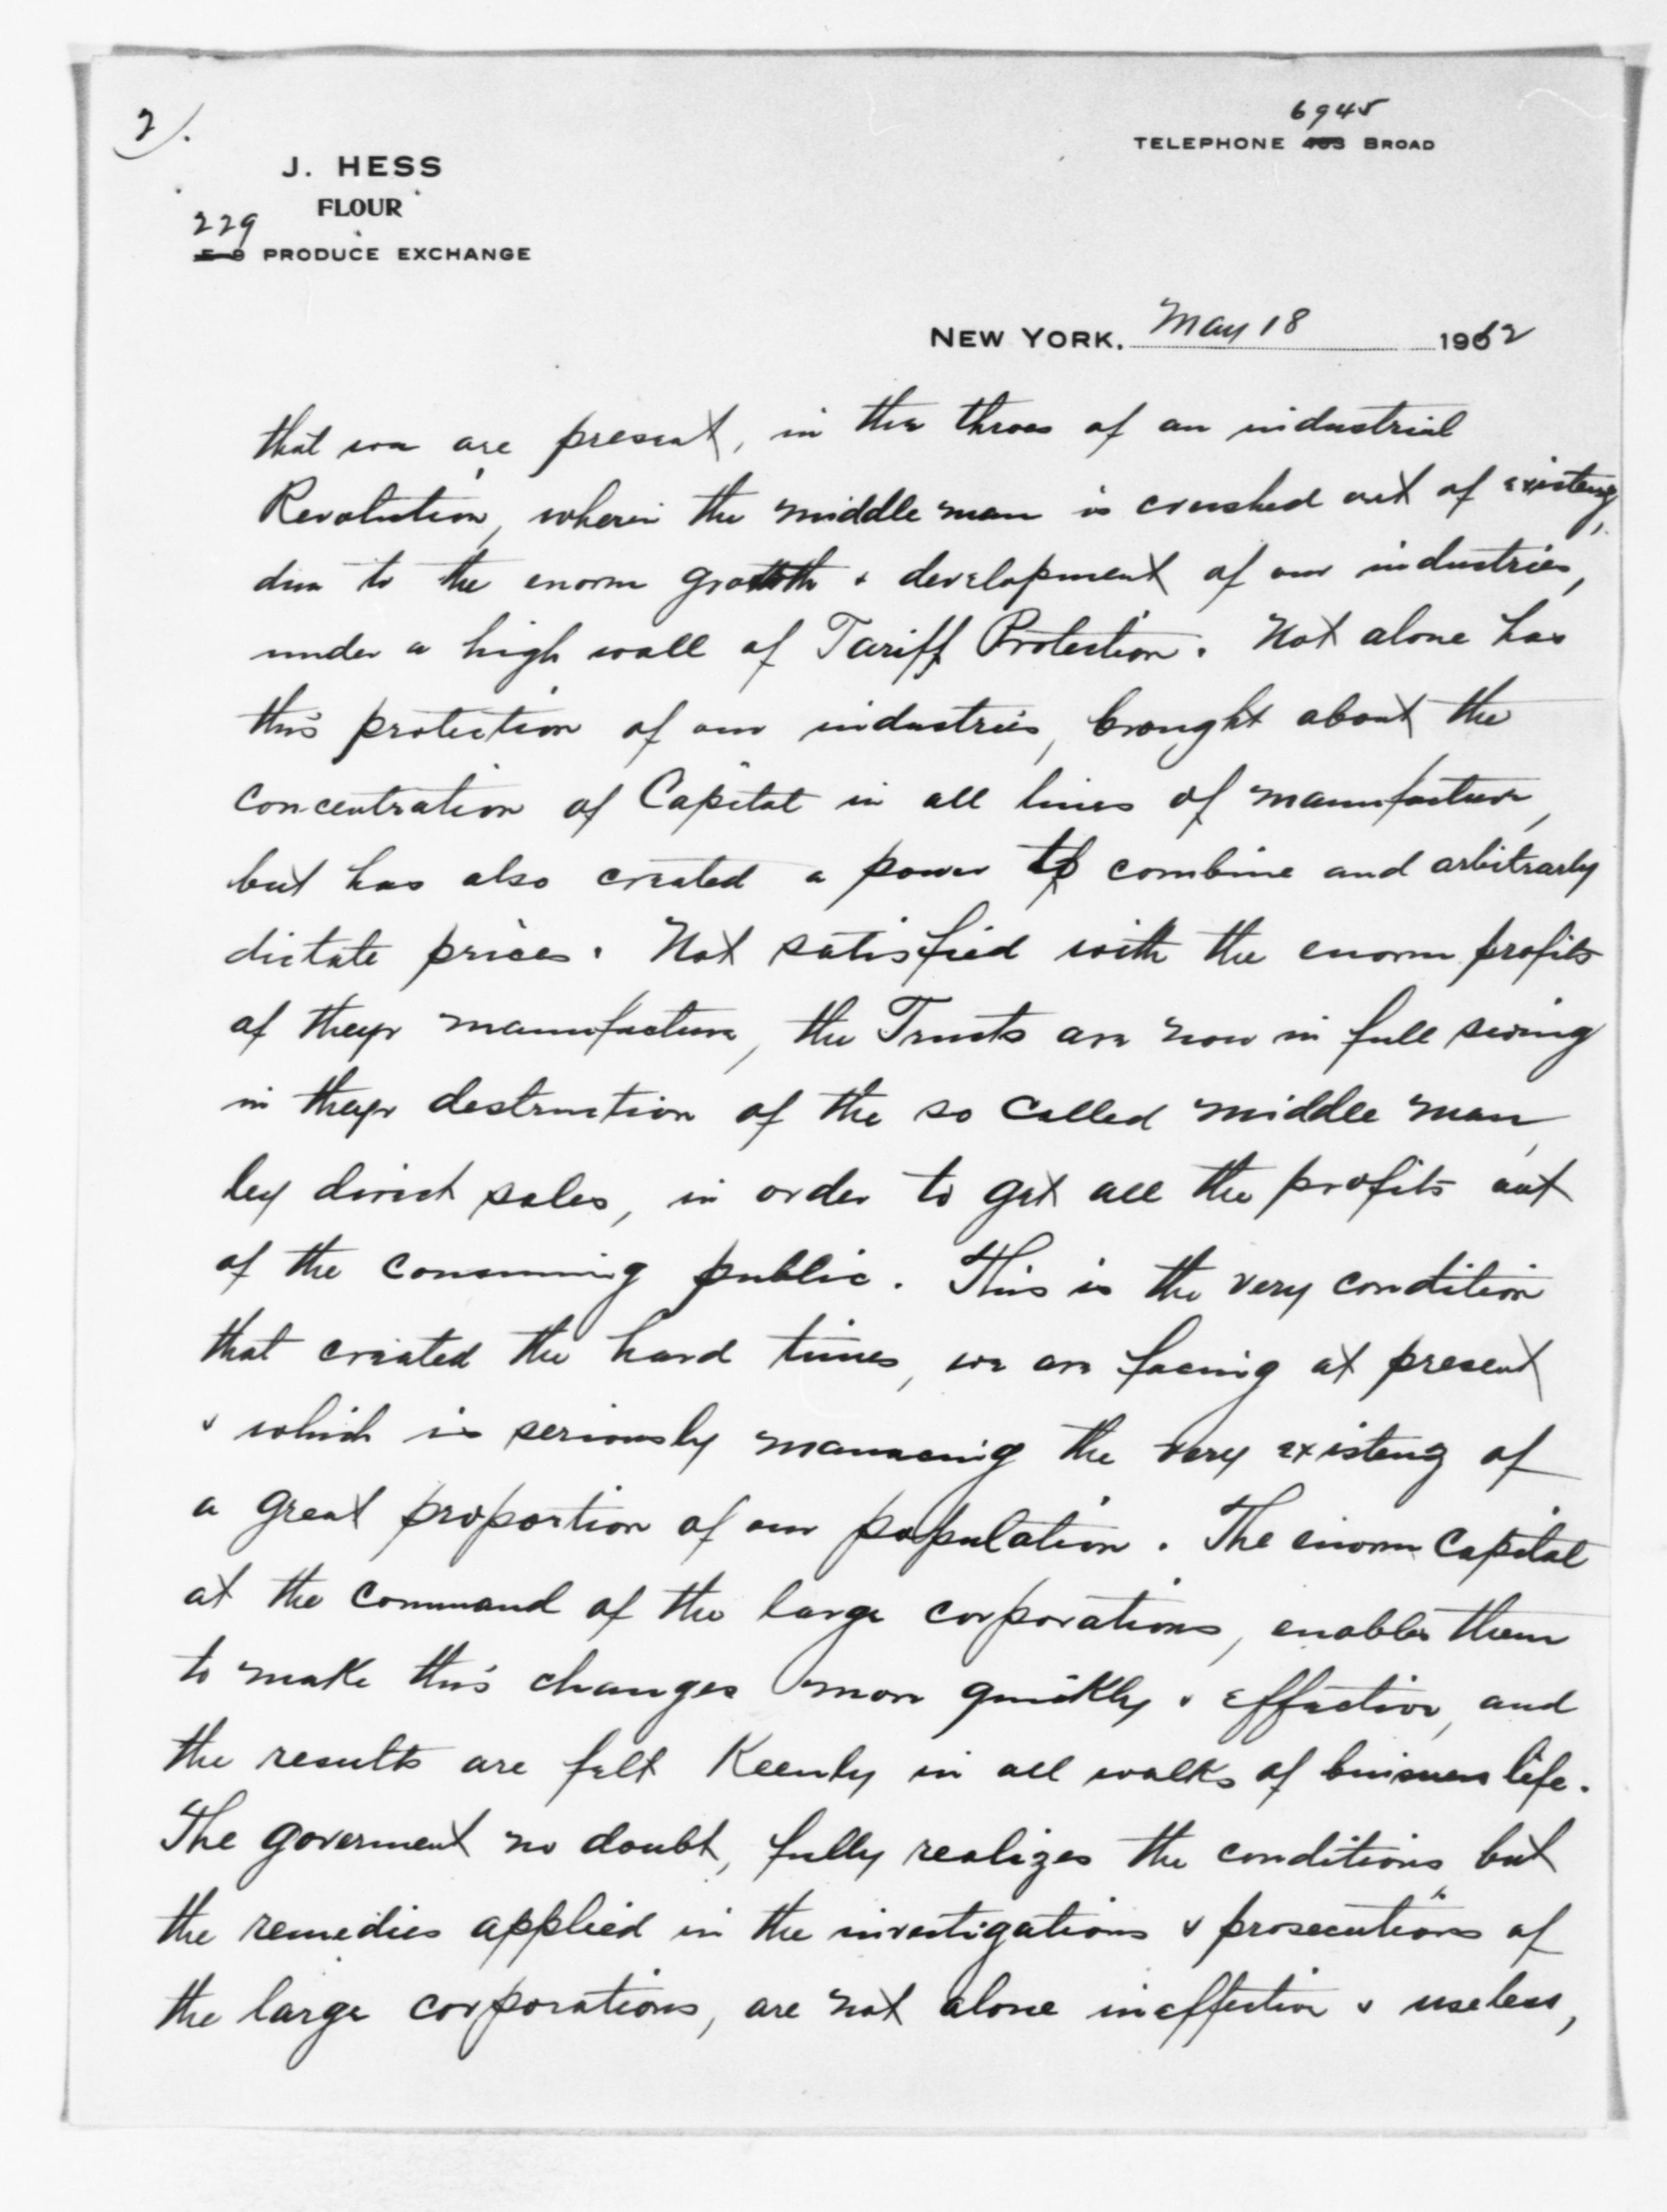 2).
6945
TELEPHONE 403 BROAD
J. HESS
FLOUR
229
E-9 PRODUCE EXCHANGE
NEW YORK. May 18 1912
that we are present, in the throes of an industrial
Revolution, wherin the middle man is crushed out of existenz,
due to the enorm growth & development of our industries,
under a high wall of Tariff Protection. Not alone has
this protection of our industries, brought about the
concentration of Capital in all lines of manufacture,
but has also created a power to combine and arbitrarly
dictate prices. Not satisfied with the enorm profits
of theyr manufacture, the Trusts are now in full swing
in theyr destruction of the so called middle man,
by direct sales, in order to get all the profits out
of the consuming public. This is the very condition
that created the hard times, we are facing at present
& which is seriously mannacing the very existenz of
a great proportion of our population. The enorm Capital
at the command of the large corporations, enables them
to make this changes more quickly & effective, and
the results are felt Keenly in all walks of buisness life.
The goverment no doubt, fully realizes the conditions but
the remedies applied in the investigations & prosecutions of
the large corporations, are not alone ineffective & useless,